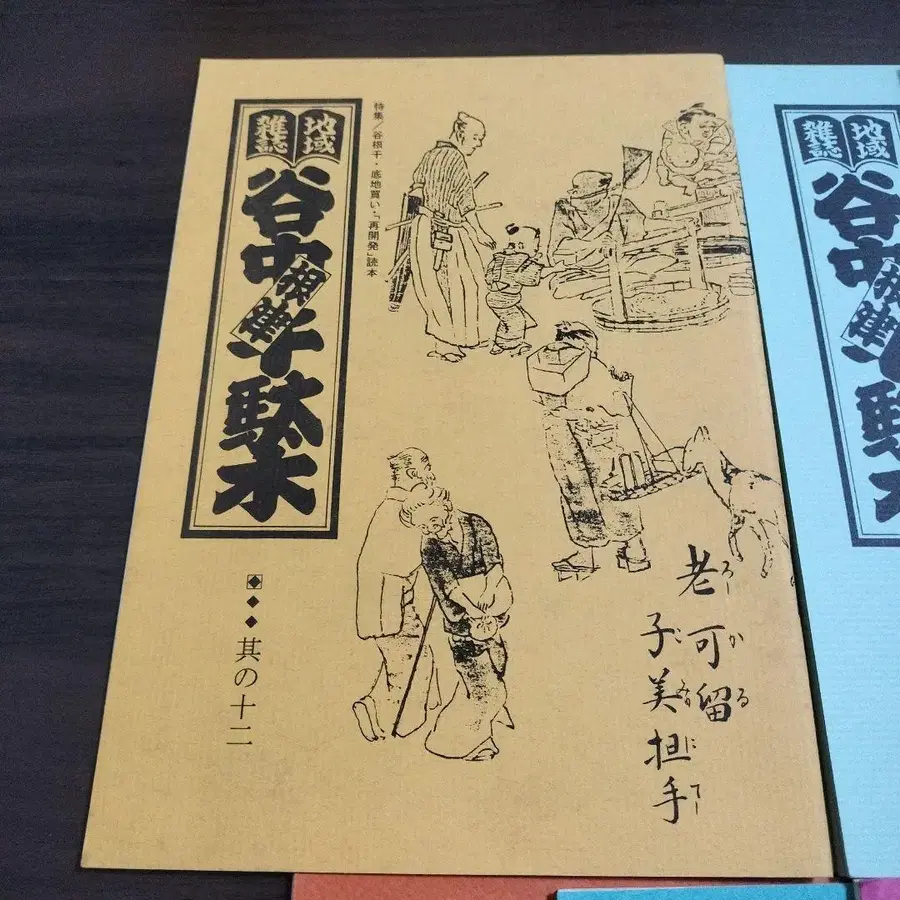 地域
雑誌
谷中
根津
千駄木
其の十二
特集/谷根千・底地買い・「再開発」読本
老可留
ろーかる
子美担手
にてー
地域
雑誌
谷中
根津